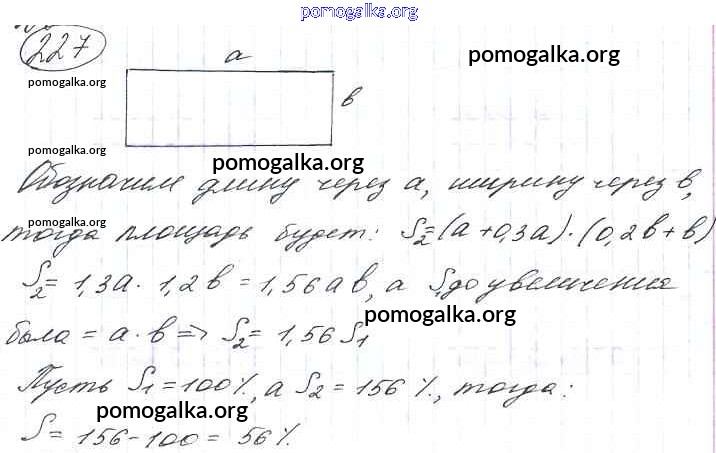 pomogalka.org
227
pomogalka.org
a
pomogalka.org
в
pomogalka.org
pomogalka.org
Обозначим длину через а, ширину через в,
pomogalka.org
тогда площадь будет: S₂=(а+0,3а)·(0,2в+в)
S₂= 1,3а · 1,2в = 1,56ав, а S₁ до увеличения
была = а·в => S₂= 1,56 S₁
pomogalka.org
Пусть S₁=100%, а S₂ = 156 %, тогда:
pomogalka.org
S= 156-100= 56%